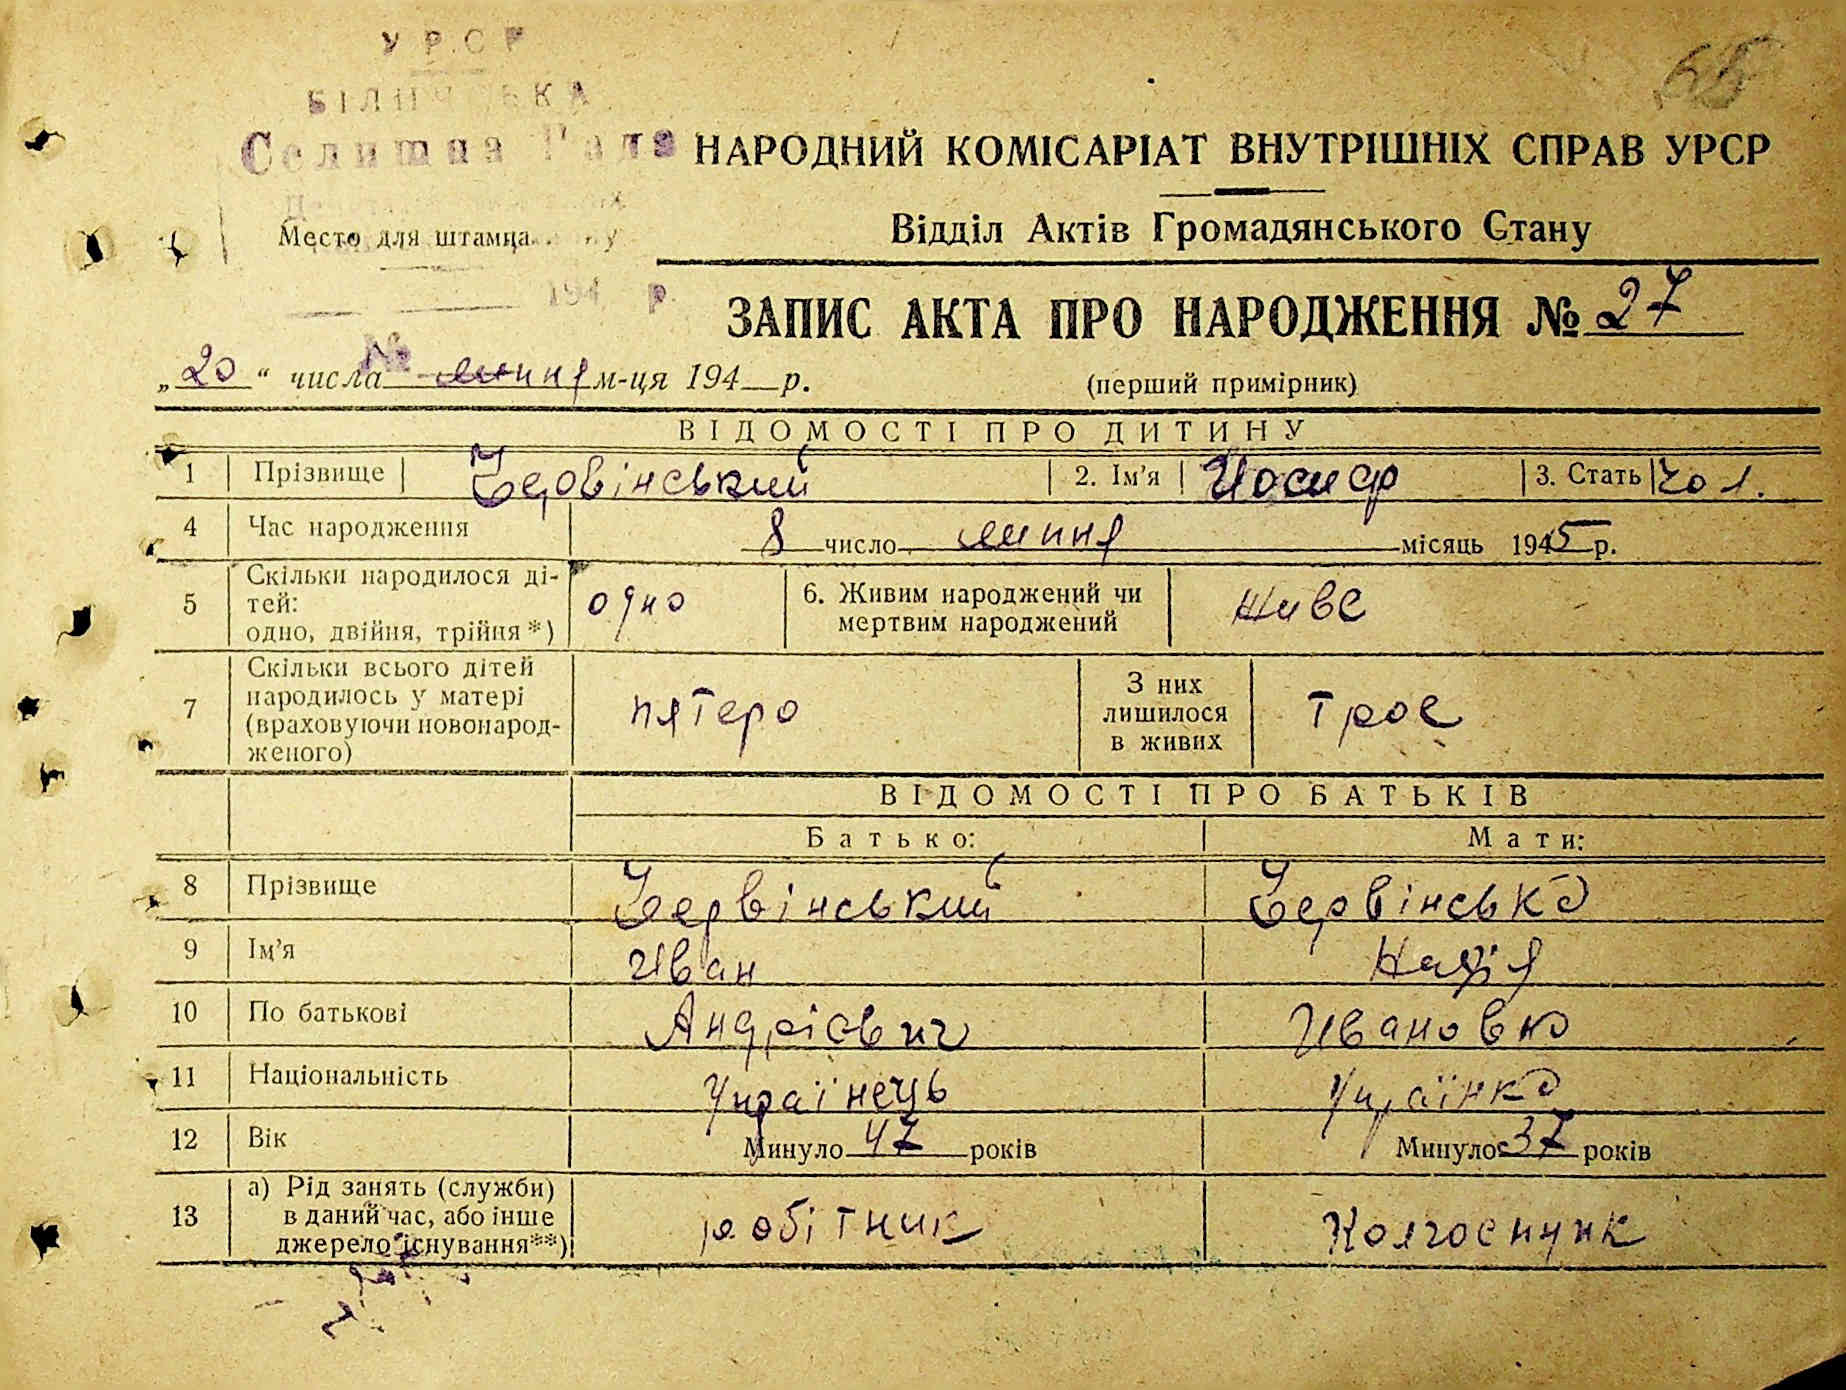 УРСР
Селишна Рада
65
НАРОДНИЙ КОМІСАРІАТ ВНУТРІШНІХ СПРАВ УРСР
Место для штампа
Відділ Актів Громадянського Стану
194 р.
ЗАПИС АКТА ПРО НАРОДЖЕННЯ № 27
№
„20“ числа липня м-ця 194 р.
(перший примірник)
ВІДОМОСТІ ПРО ДИТИНУ
1 Прізвище Червінський 2. Ім'я Йосиф 3. Стать чол.
4 Час народження 8 число липня місяць 1945 р.
5 Скільки народилося ді-
тей:
одно, двійня, трійня*) одно 6. Живим народжений чи
мертвим народжений живе
7 Скільки всього дітей
народилось у матері
(враховуючи новонарод-
женого) пятеро З них
лишилося
в живих троє
ВІДОМОСТІ ПРО БАТЬКІВ
Батько: Мати:
8 Прізвище Червінський Червінська
9 Ім'я Иван Надія
10 По батькові Андрієвич Ивановна
11 Національність Українець Українка
12 Вік Минуло 47 років Минуло 37 років
13 а) Рід занять (служби)
в даний час, або інше
джерело існування**) робітник Колгоспник